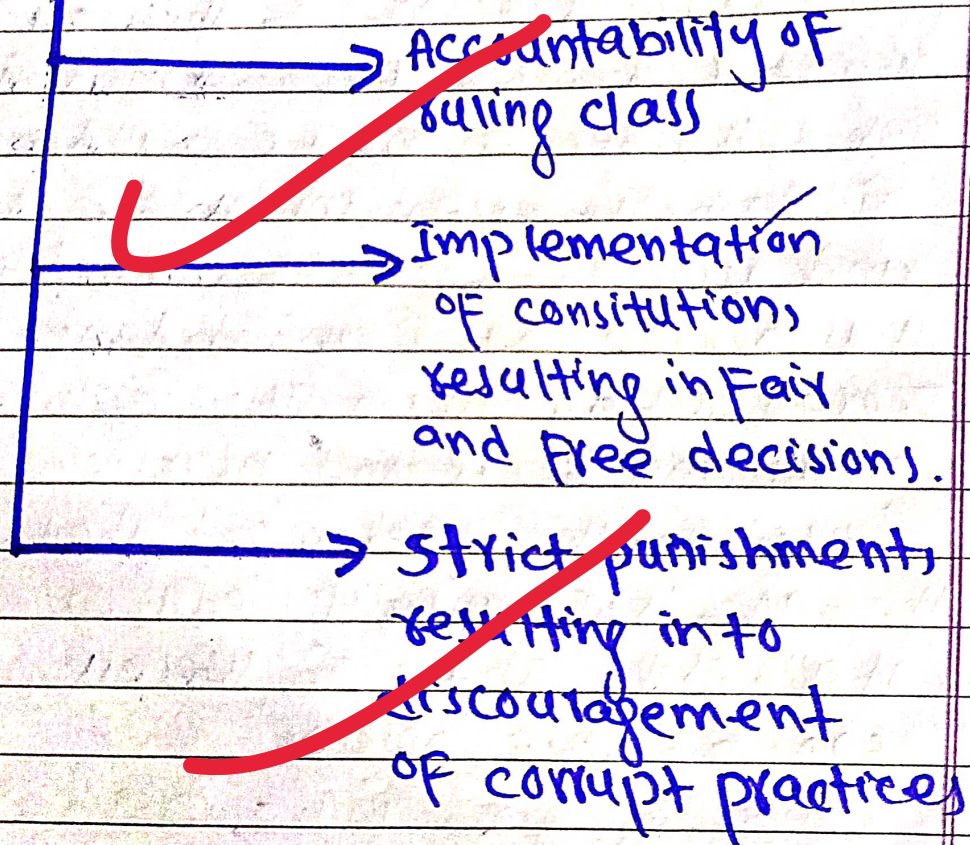 Accountability of
ruling class
Implementation
of consitution,
resulting in Fair
and Free decisions.
Strict punishment,
resulting into
discouragement
of corrupt practices